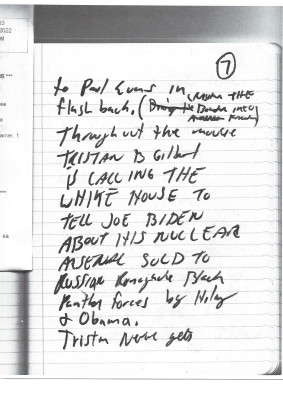 23
2022
st
***
1
***
7
to Paul Evans in
flash back. (
Throughout the movie
TRISTAN B Gilbert
IS CALLING THE
WHITE HOUSE TO
TELL JOE BIDEN
ABOUT HIS NUCLEAR
ARSENAL SOLD TO
RUSSIAN Renegade Black
Panther forces by Hilary
& Obama.
Tristan Never gets